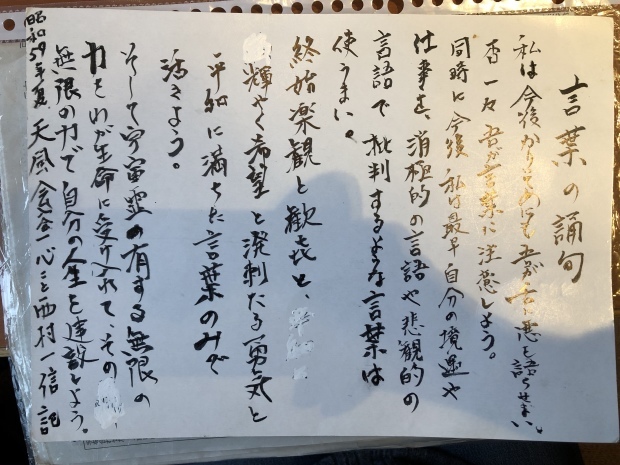 言葉の誦句
私は今後かりそめにも吾が舌に悪を語らせまい。
否一々吾が言葉に注意しよう。
同時に今後私は最早自分の境遇や
仕事を、消極的の言語や悲観的の
言語で批判するような言葉は
使うまい。
終始楽観と歓喜と、
輝やく希望と溌剌たる勇気と
平和に満ちた言葉のみで
活きよう。
そして宇宙霊の有する無限の
力をわが生命に受け入れて、その
無限の力で自分の人生を建設しよう。
昭和59年夏 天風会会一心こと西村一信記